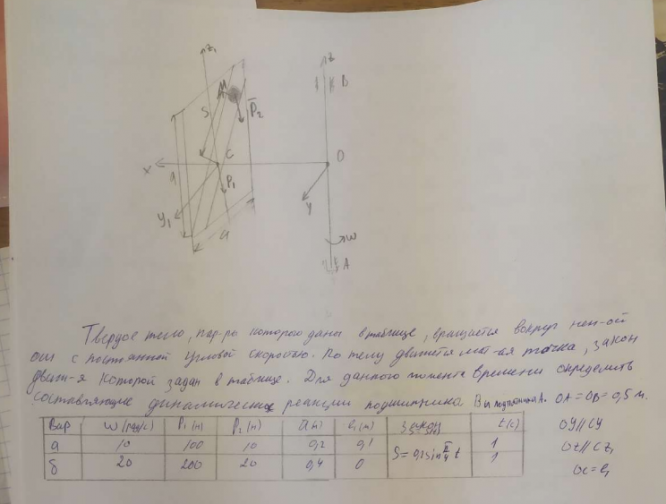 z₁
z
B
M
S
P̄₂
x
C
O
a
P₁
y
y₁
a
ω
A
Твердое тело, пар-ры которого даны в таблице, вращается вокруг неп-ой
оси с постоянной угловой скоростью. По телу движется мат-ая точка, закон
движ-я которой задан в таблице. Для данного момента времени определить
составляющие динамические реакции подшипника В и подпятника А. OA = OB = 0,5 м.
Вар ω (рад/с) P₁ (н) P₂ (н) a (м) e₁ (м) t (с) OY//CY
а 10 100 10 0,2 0,1 S = 0,1 sin π/4 t 1 OZ//CZ₁
б 20 200 20 0,4 0 1 OC = e₁